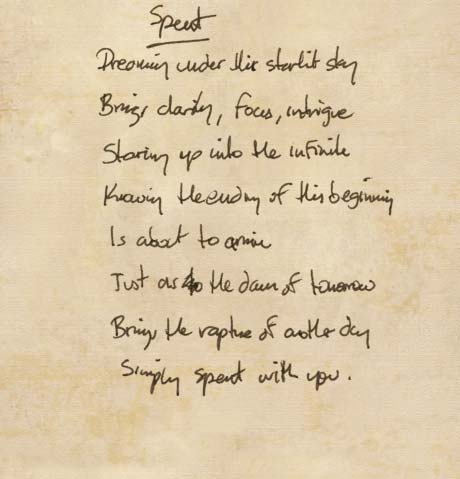 Spent
Dreaming under this starlit sky
Brings clarity, focus, intrigue
Staring up into the infinite
Knowing the ending of this beginning
Is about to arrive
Just as the dawn of tomorrow
Brings the rapture of another day
Simply spent with you.